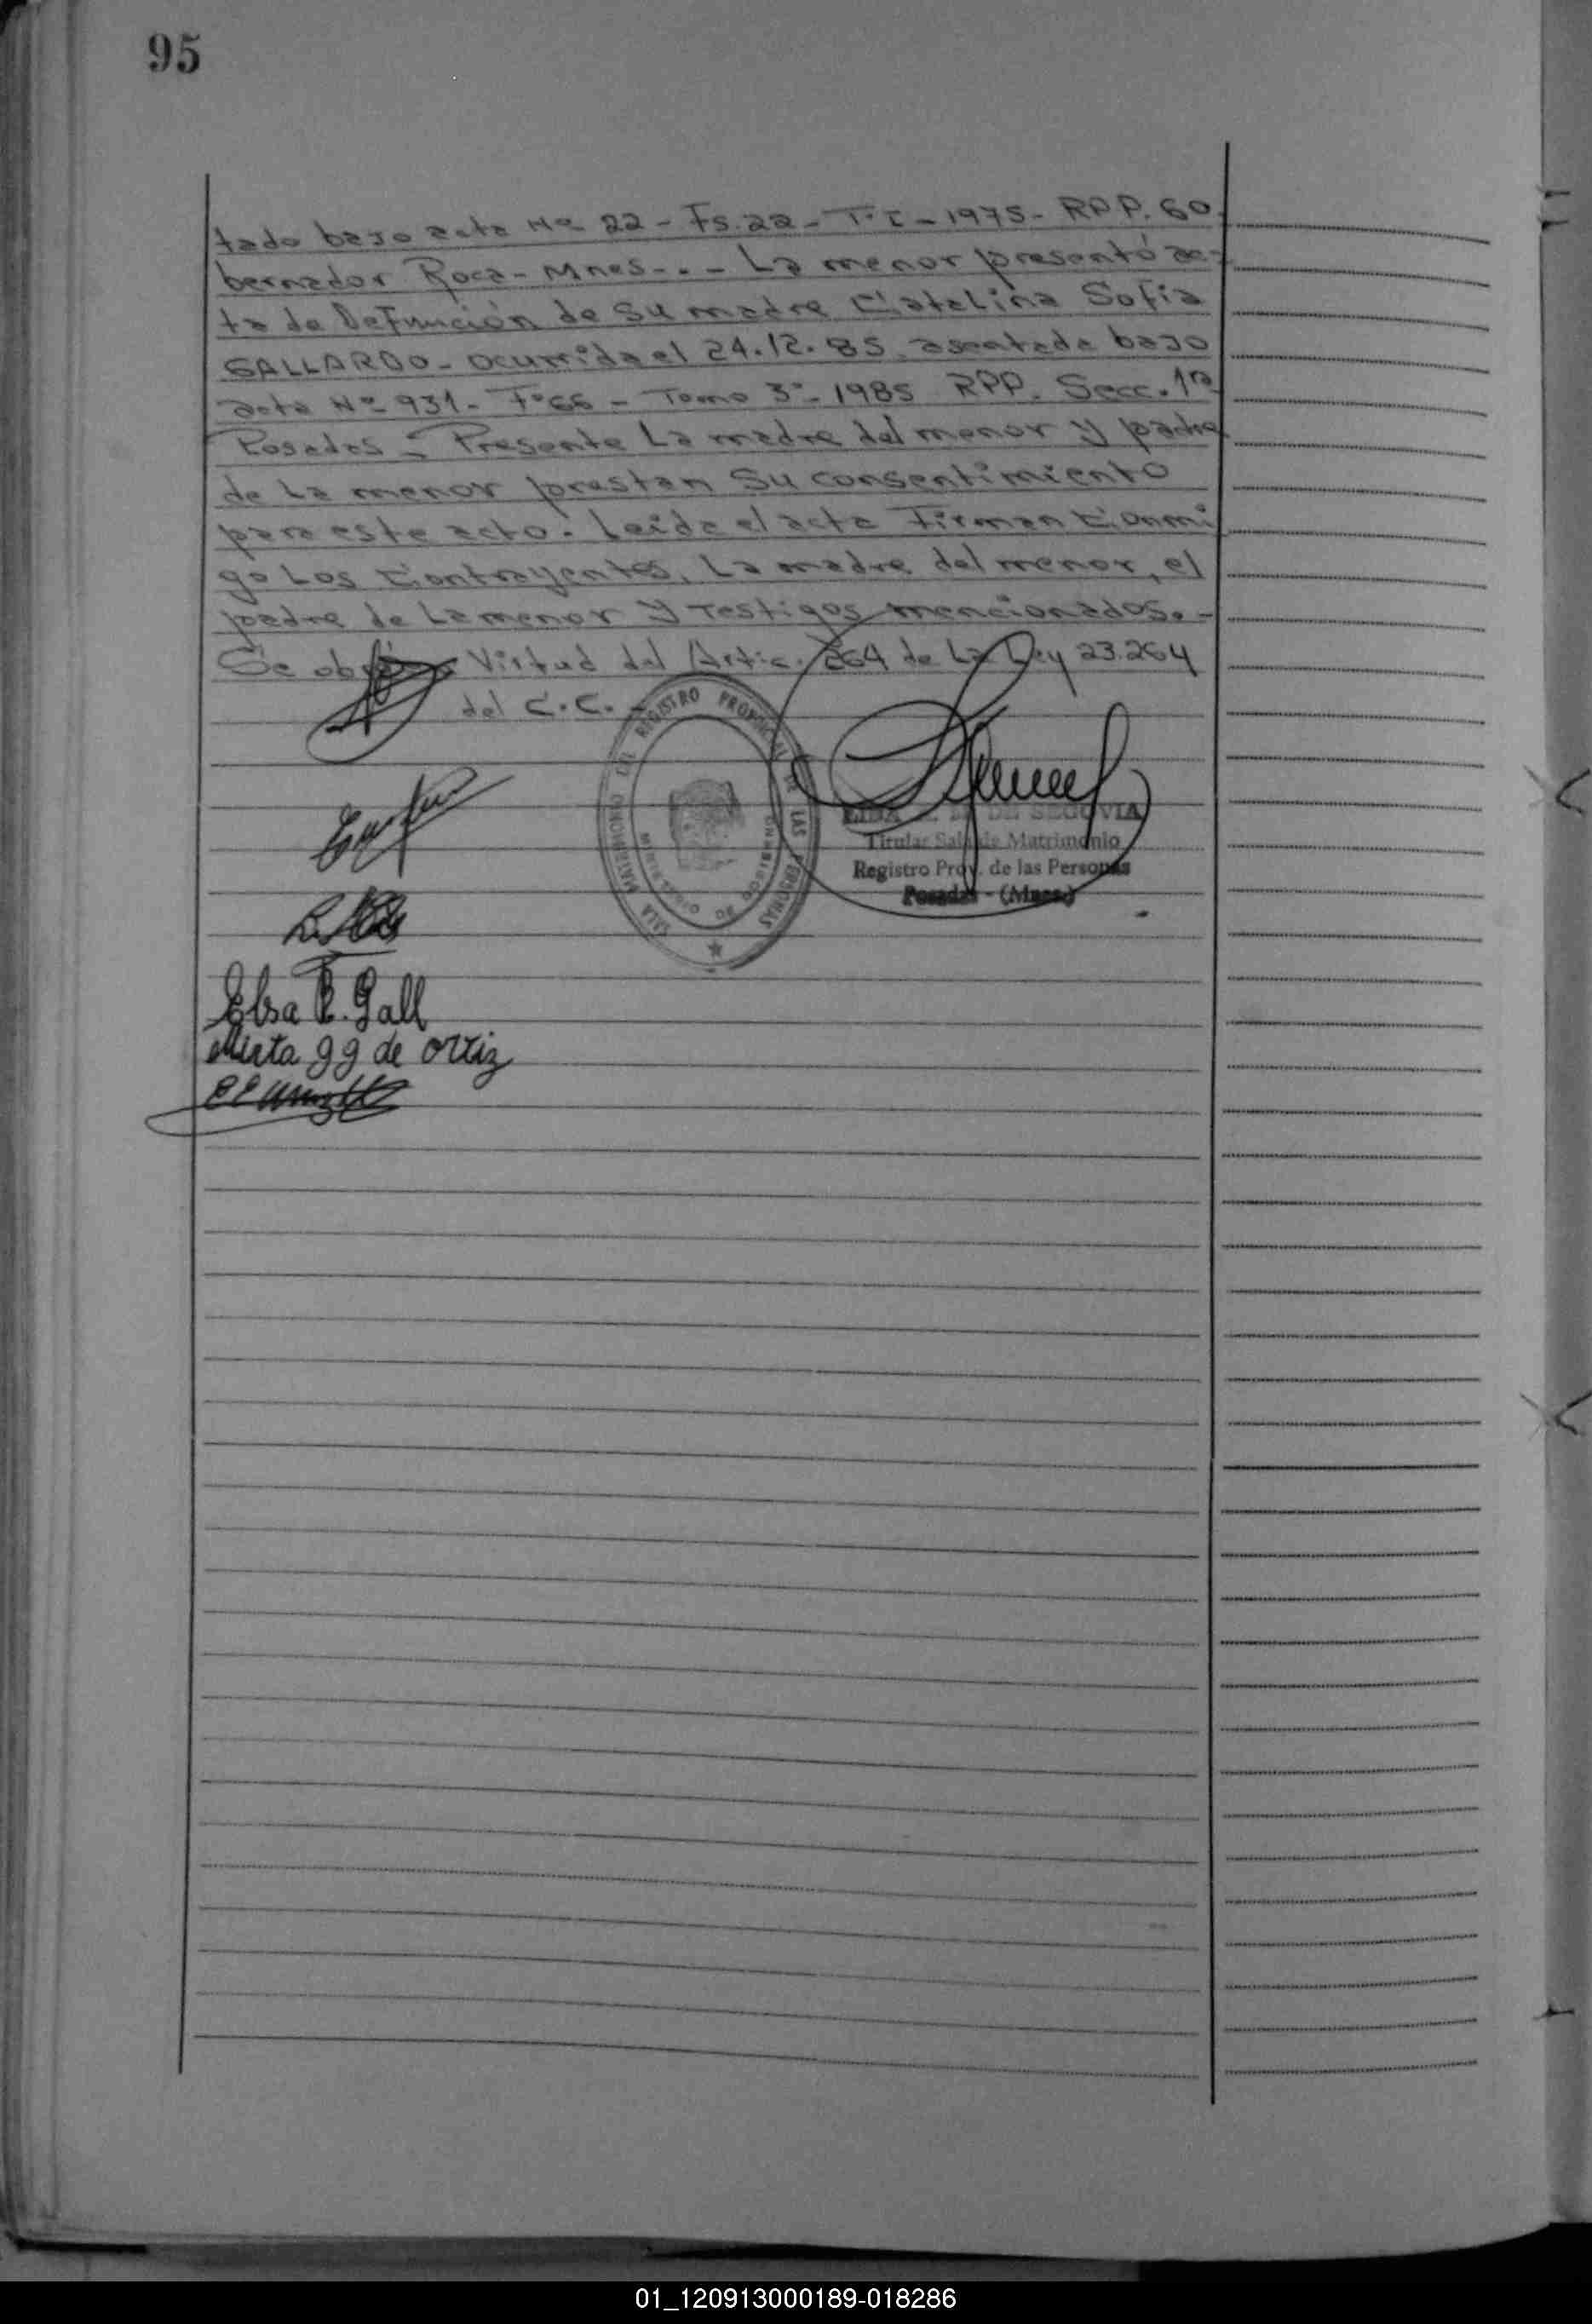 95
tado bajo acta Nº 22 - Fs. 22 - T. I - 1975 - RPP. Go
bernador Roca - Mnes - . - La menor presentó ac-
ta de Defunción de su madre Catalina Sofia
GALLARDO - ocurrida el 24.12.85, asentada bajo
acta Nº 931 - Fº 66 - Tomo 3º - 1985 RPP. Secc. 1ra
Posadas - Presente La madre del menor y padre
de La menor prestan su consentimiento
para este acto. Leida el acta Firman Conmi
go Los Contrayentes, La madre del menor, el
padre de La menor y Testigos mencionados. -
Se Virtud del Artic. 264 de La Ley 23.264
del C.C. -
SALA MATRIMONIO DEL REGISTRO PROVINCIAL DE LAS PERSONAS
DE SEGOVIA
Titular Sala de Matrimonio
Registro Prov. de las Personas
Posadas - (Mnes.)
Elsa E. Gall
Mirta gg de ortiz
01_120913000189-018286